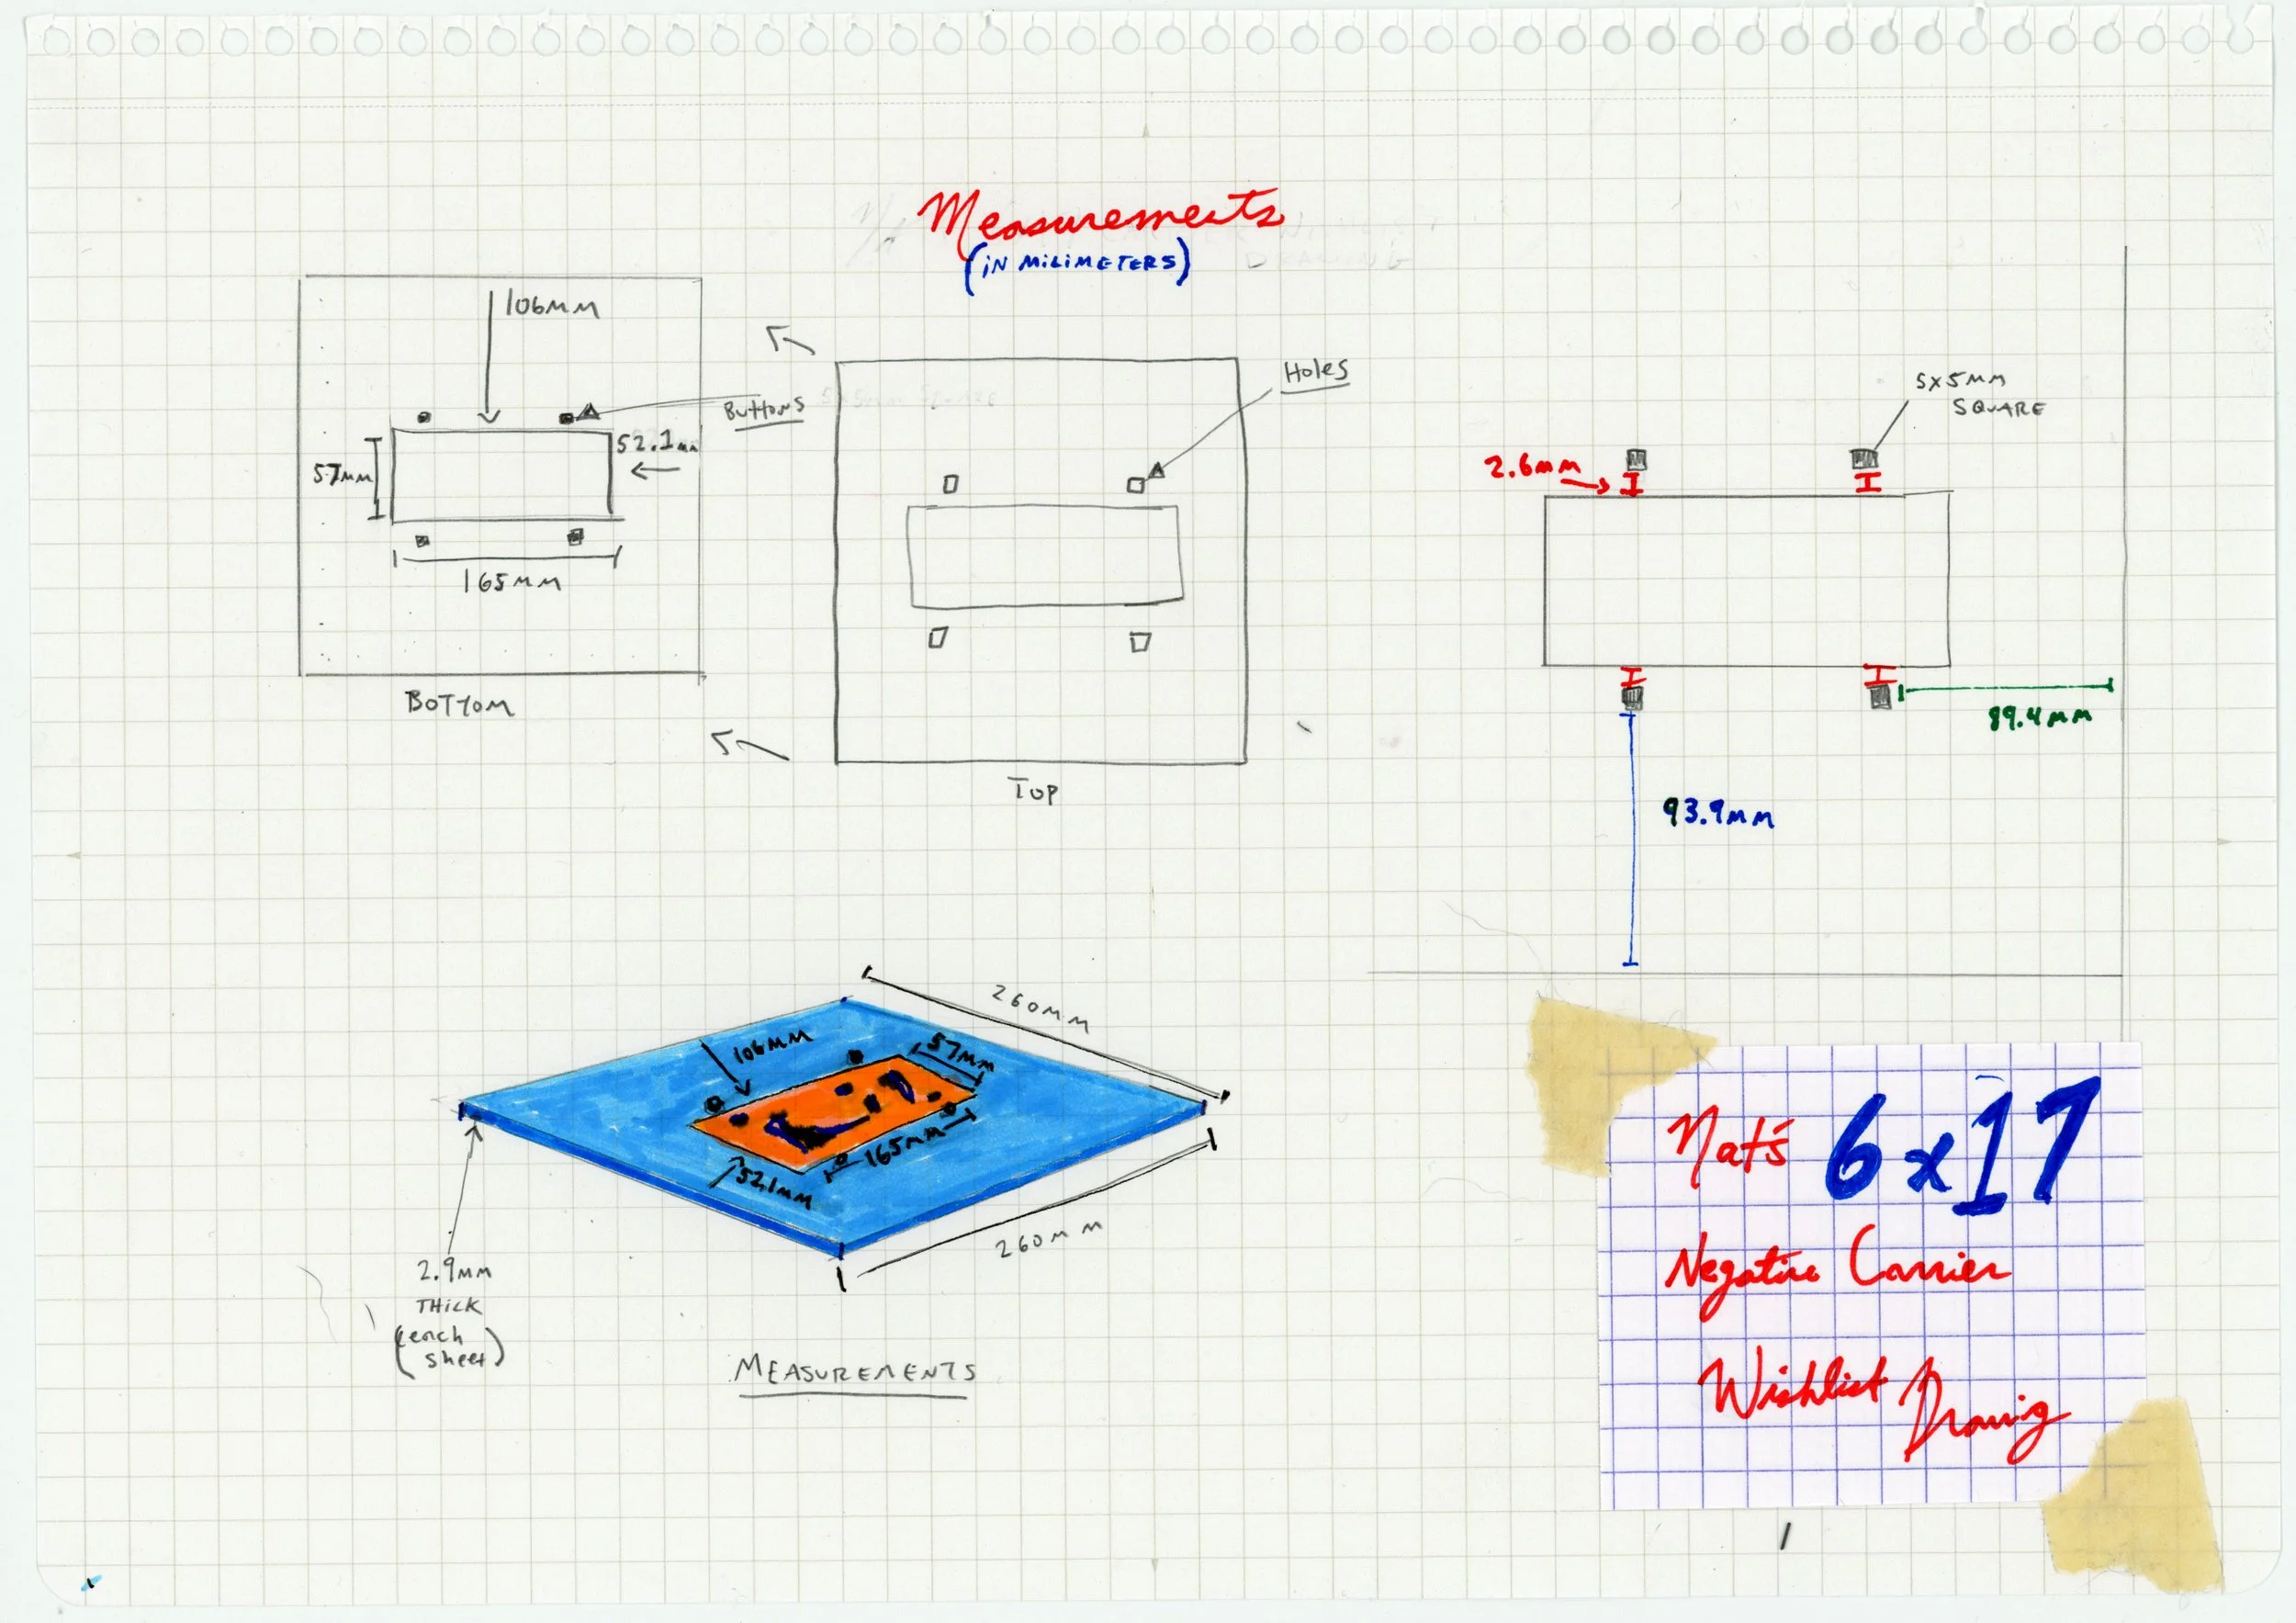 Measurements
(IN MILIMETERS)
106MM
Buttons
52.1mm
57MM
165MM
BOTTOM
Holes
TOP
5x5MM
SQUARE
2.6mm
89.4MM
93.9MM
260MM
106MM
57MM
165MM
52.1MM
260MM
2.9MM
THICK
(each
sheet)
MEASUREMENTS
Nat's 6x17
Negative Carrier
Wishlist Drawing